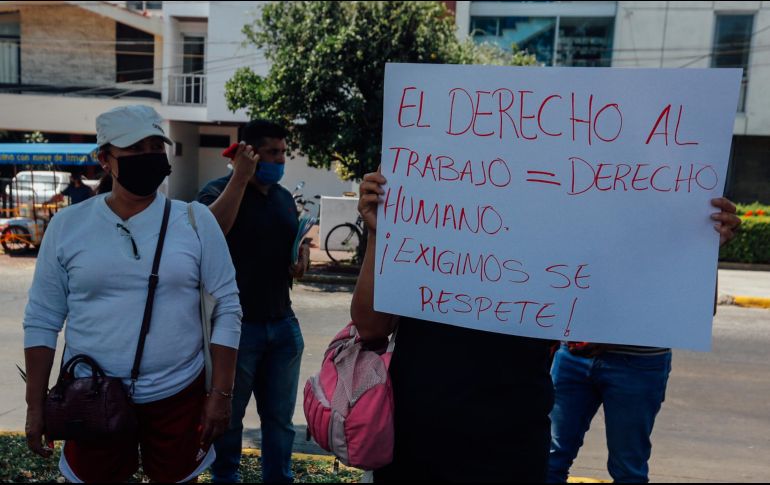 EL DERECHO AL
TRABAJO = DERECHO
HUMANO.
¡EXIGIMOS SE
RESPETE!